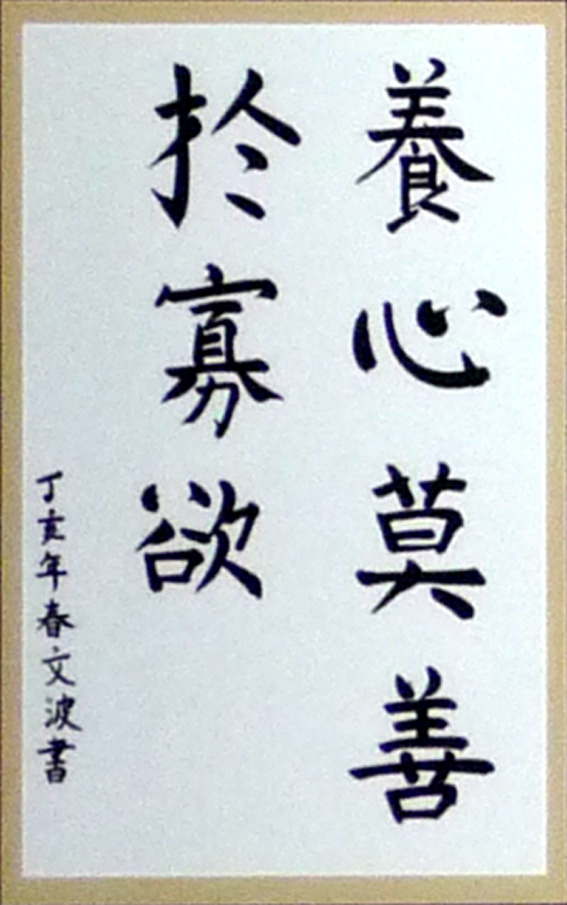 養心莫善
於寡欲
丁亥年春文波書